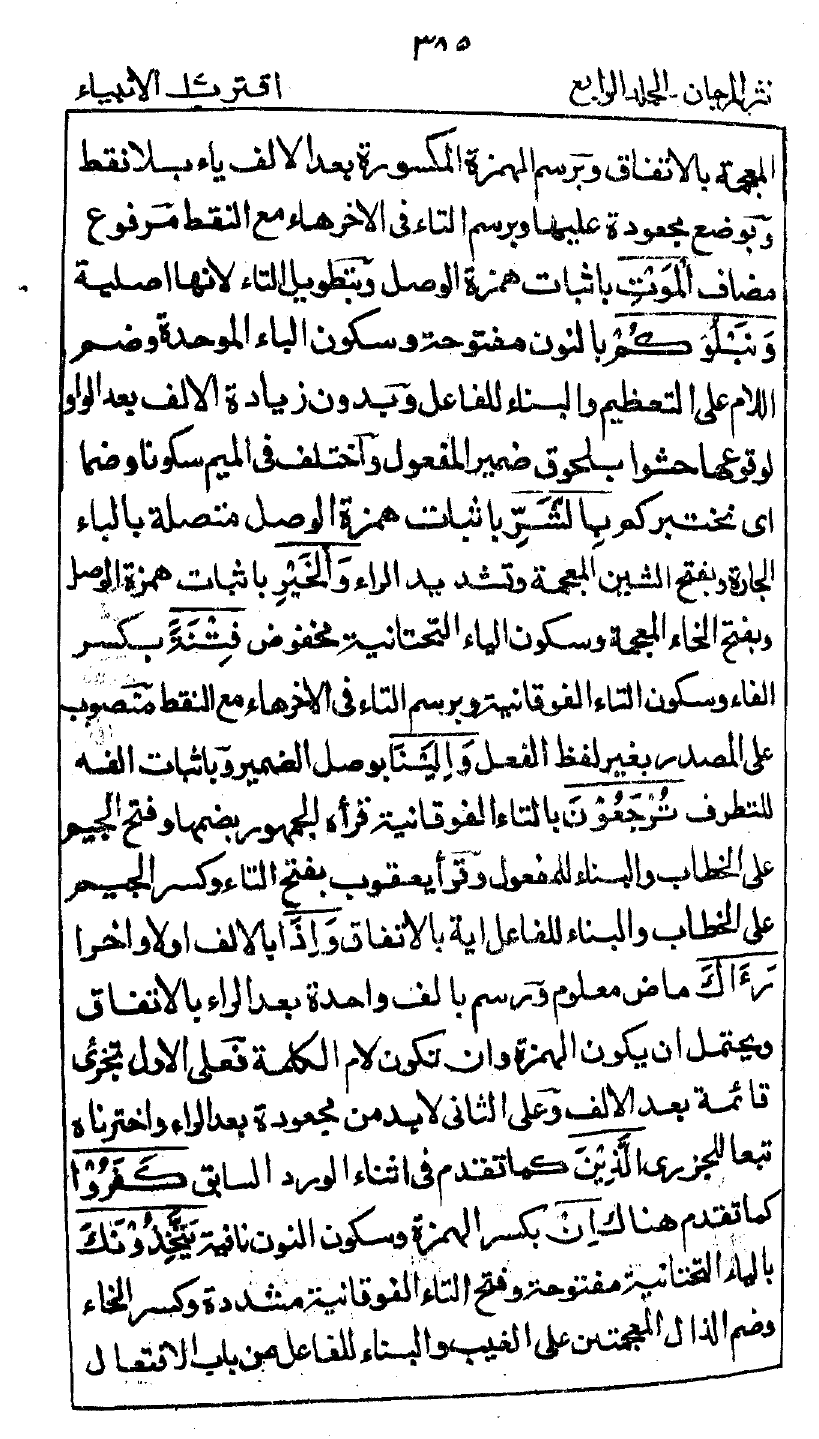 ٣٨٥
نثر المرجان - المجلد الرابع
اقترب الانبياء
المعجمة بالاتفاق وبرسم الهمزة المكسورة بعد الالف ياء بلا نقط
وبوضع مجعودة عليها وبرسم التاء فى الاخر هاء مع النقط مرفوع
مضاف الْمَوْتِ باثبات همزة الوصل وبتطويل التاء لانها اصلية
وَنَبْلُوَكُمْ بالنون مفتوحة وسكون الباء الموحدة وضم
اللام على التعظيم والبناء للفاعل وبدون زيادة الالف بعد الواو
لوقوعها حشوا بلحوق ضمير المفعول واختلف فى الميم سكونا وضما
اى نختبركم بِالشَّرِّ باثبات همزة الوصل متصلة بالباء
الجارة وبفتح الشين المعجمة وتشديد الراء وَالْخَيْرِ باثبات همزة الوصل
وبفتح الخاء المعجمة وسكون الياء التحتانية مخفوض فِتْنَةً بكسر
الفاء وسكون التاء الفوقانية وبرسم التاء فى الاخر هاء مع النقط منصوب
على المصدر بغير لفظ الفعل وَاِلَيْنَا بوصل الضمير وباثبات الفه
للتطرف تُرْجَعُوْنَ بالتاء الفوقانية قرأه الجمهور بضمها وفتح الجيم
على الخطاب والبناء للمفعول وقرأ يعقوب بفتح التاء وكسر الجيم
على الخطاب والبناء للفاعل اية بالاتفاق وَاِذَا بالالف اولا واخرا
رَءَاكَ ماض معلوم ورسم بالف واحدة بعد الراء بالاتفاق
ويحتمل ان يكون الهمزة وان تكون لام الكلمة فعلى الاول تجرى
قائمة بعد الالف وعلى الثانى لابد من مجعودة بعد الراء واخترناه
تبعا للجزرى الَّذِيْنَ كما تقدم فى اثناء الورد السابق كَفَرُوْا
كما تقدم هناك اِنْ بكسر الهمزة وسكون النون نافية يَتَّخِذُوْنَكَ
بالياء التحتانية مفتوحة وفتح التاء الفوقانية مشددة وكسر الخاء
وضم الذال المعجمتين على الغيب والبناء للفاعل من باب الافتعال